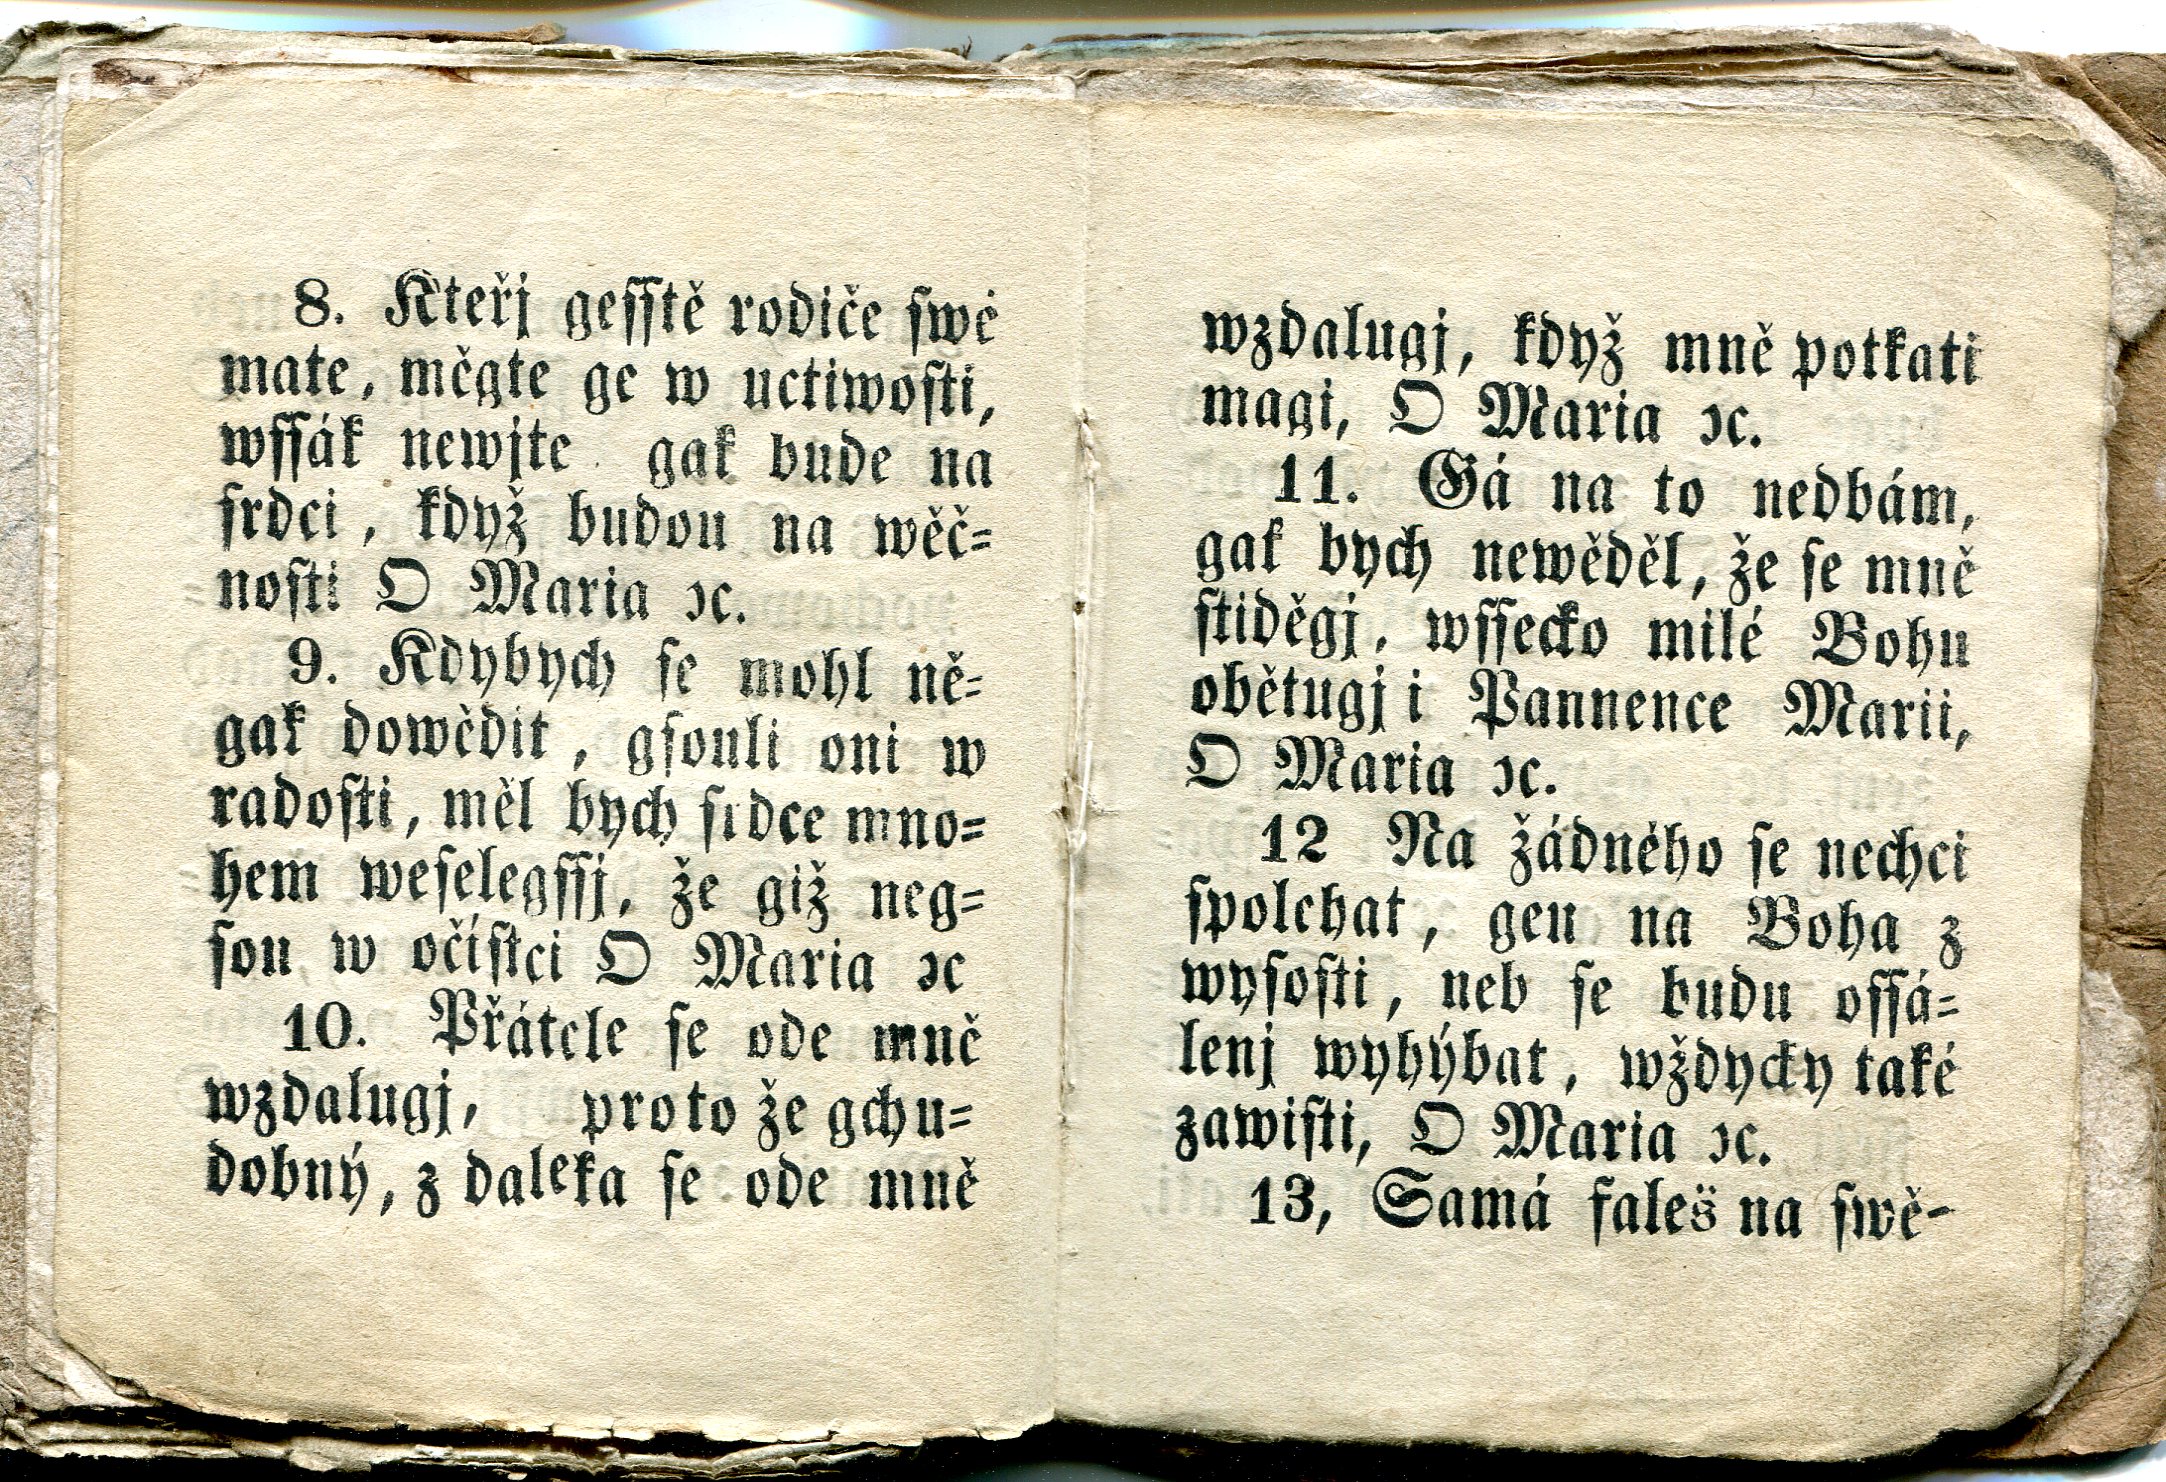 8. Kteřj gesstě rodiče swé
mate, mĕgte ge w uctiwosti,
wssák newjte gak bude na
srdci, když budou na wěč=
nosti O Maria ɔc.
9. Kdybych se mohl ně=
gak dowĕdit, gsouli oni w
radosti, měl bych srdce mno=
hem weselegssj, že giž neg=
sou w očístci O Maria ɔc
10. Přátele se ode mně
wzdalugj, proto že gchu=
dobný, z daleka se ode mně
wzdalugj, když mně potkati
magi, O Maria ɔc.
11. Gá na to nedbám,
gak bych newěděl, že se mně
stiděgj, wssecko milé Bohu
obětugj i Pannence Marii,
O Maria ɔc.
12 Na žádného se nechci
spolehat, gen na Boha z
wysosti, neb se budu ossá=
lenj wyhýbat, wždycky také
zawisti, O Maria ɔc.
13, Samá faleš na swě-